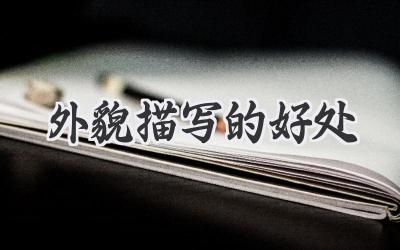 外貌描写的好处